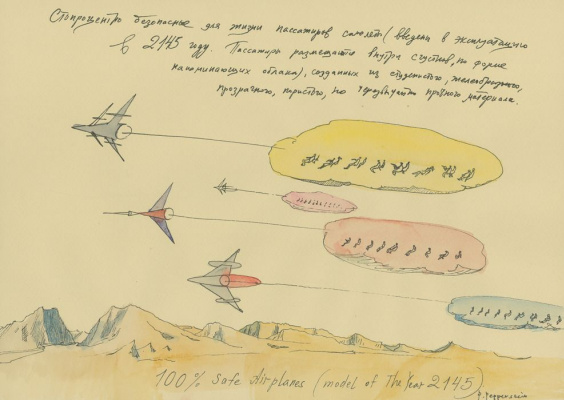 Стопроцентно безопасные для жизни пассажиров самолеты (введены в эксплуатацию
в 2145 году. Пассажиры размещаются внутри сгустков, по форме
напоминающих облака), созданных из студенистого, желеобразного,
прозрачного, пористого, но прочного материала.
100% Safe Airplanes (model of The Year 2145)
P. Pepperstein